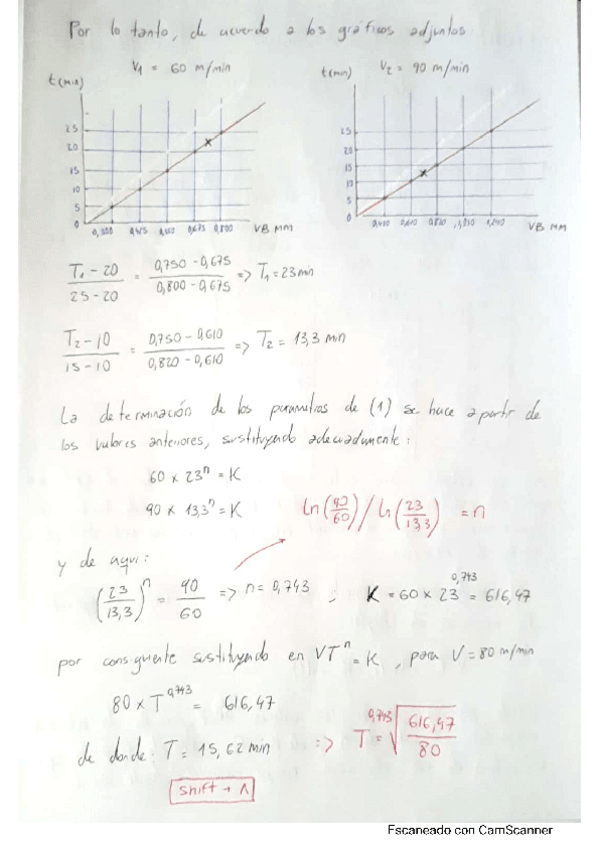 Por lo tanto, de acuerdo a los gráficos adjuntos
V1 = 60 m/min
V2 = 90 m/min
t(min)
25
20
15
10
5
0
0,675 0,800 VB MM
t(min)
25
20
15
10
5
0
0,610 0,820 VB MM
T1 - 20 / 25 - 20 = 0,750 - 0,675 / 0,800 - 0,675 => T1 = 23 min
T2 - 10 / 15 - 10 = 0,750 - 0,610 / 0,820 - 0,610 => T2 = 13,3 min
La determinación de los parametros de (1) se hace a partir de
los valores anteriores, sustituyendo adecuadamente:
60 x 23^n = K
90 x 13,3^n = K
ln(90/60) / ln(23/13,3) = n
y de aqui:
(23/13,3)^n = 90/60 => n = 0,743 ; K = 60 x 23^0,743 = 616,47
por consiguente sustituyendo en VT^n = K, para V = 80 m/min
80 x T^0,743 = 616,47
de donde: T = 15,62 min => T = 0,743√(616,47/80)
shift + ^
Escaneado con CamScanner